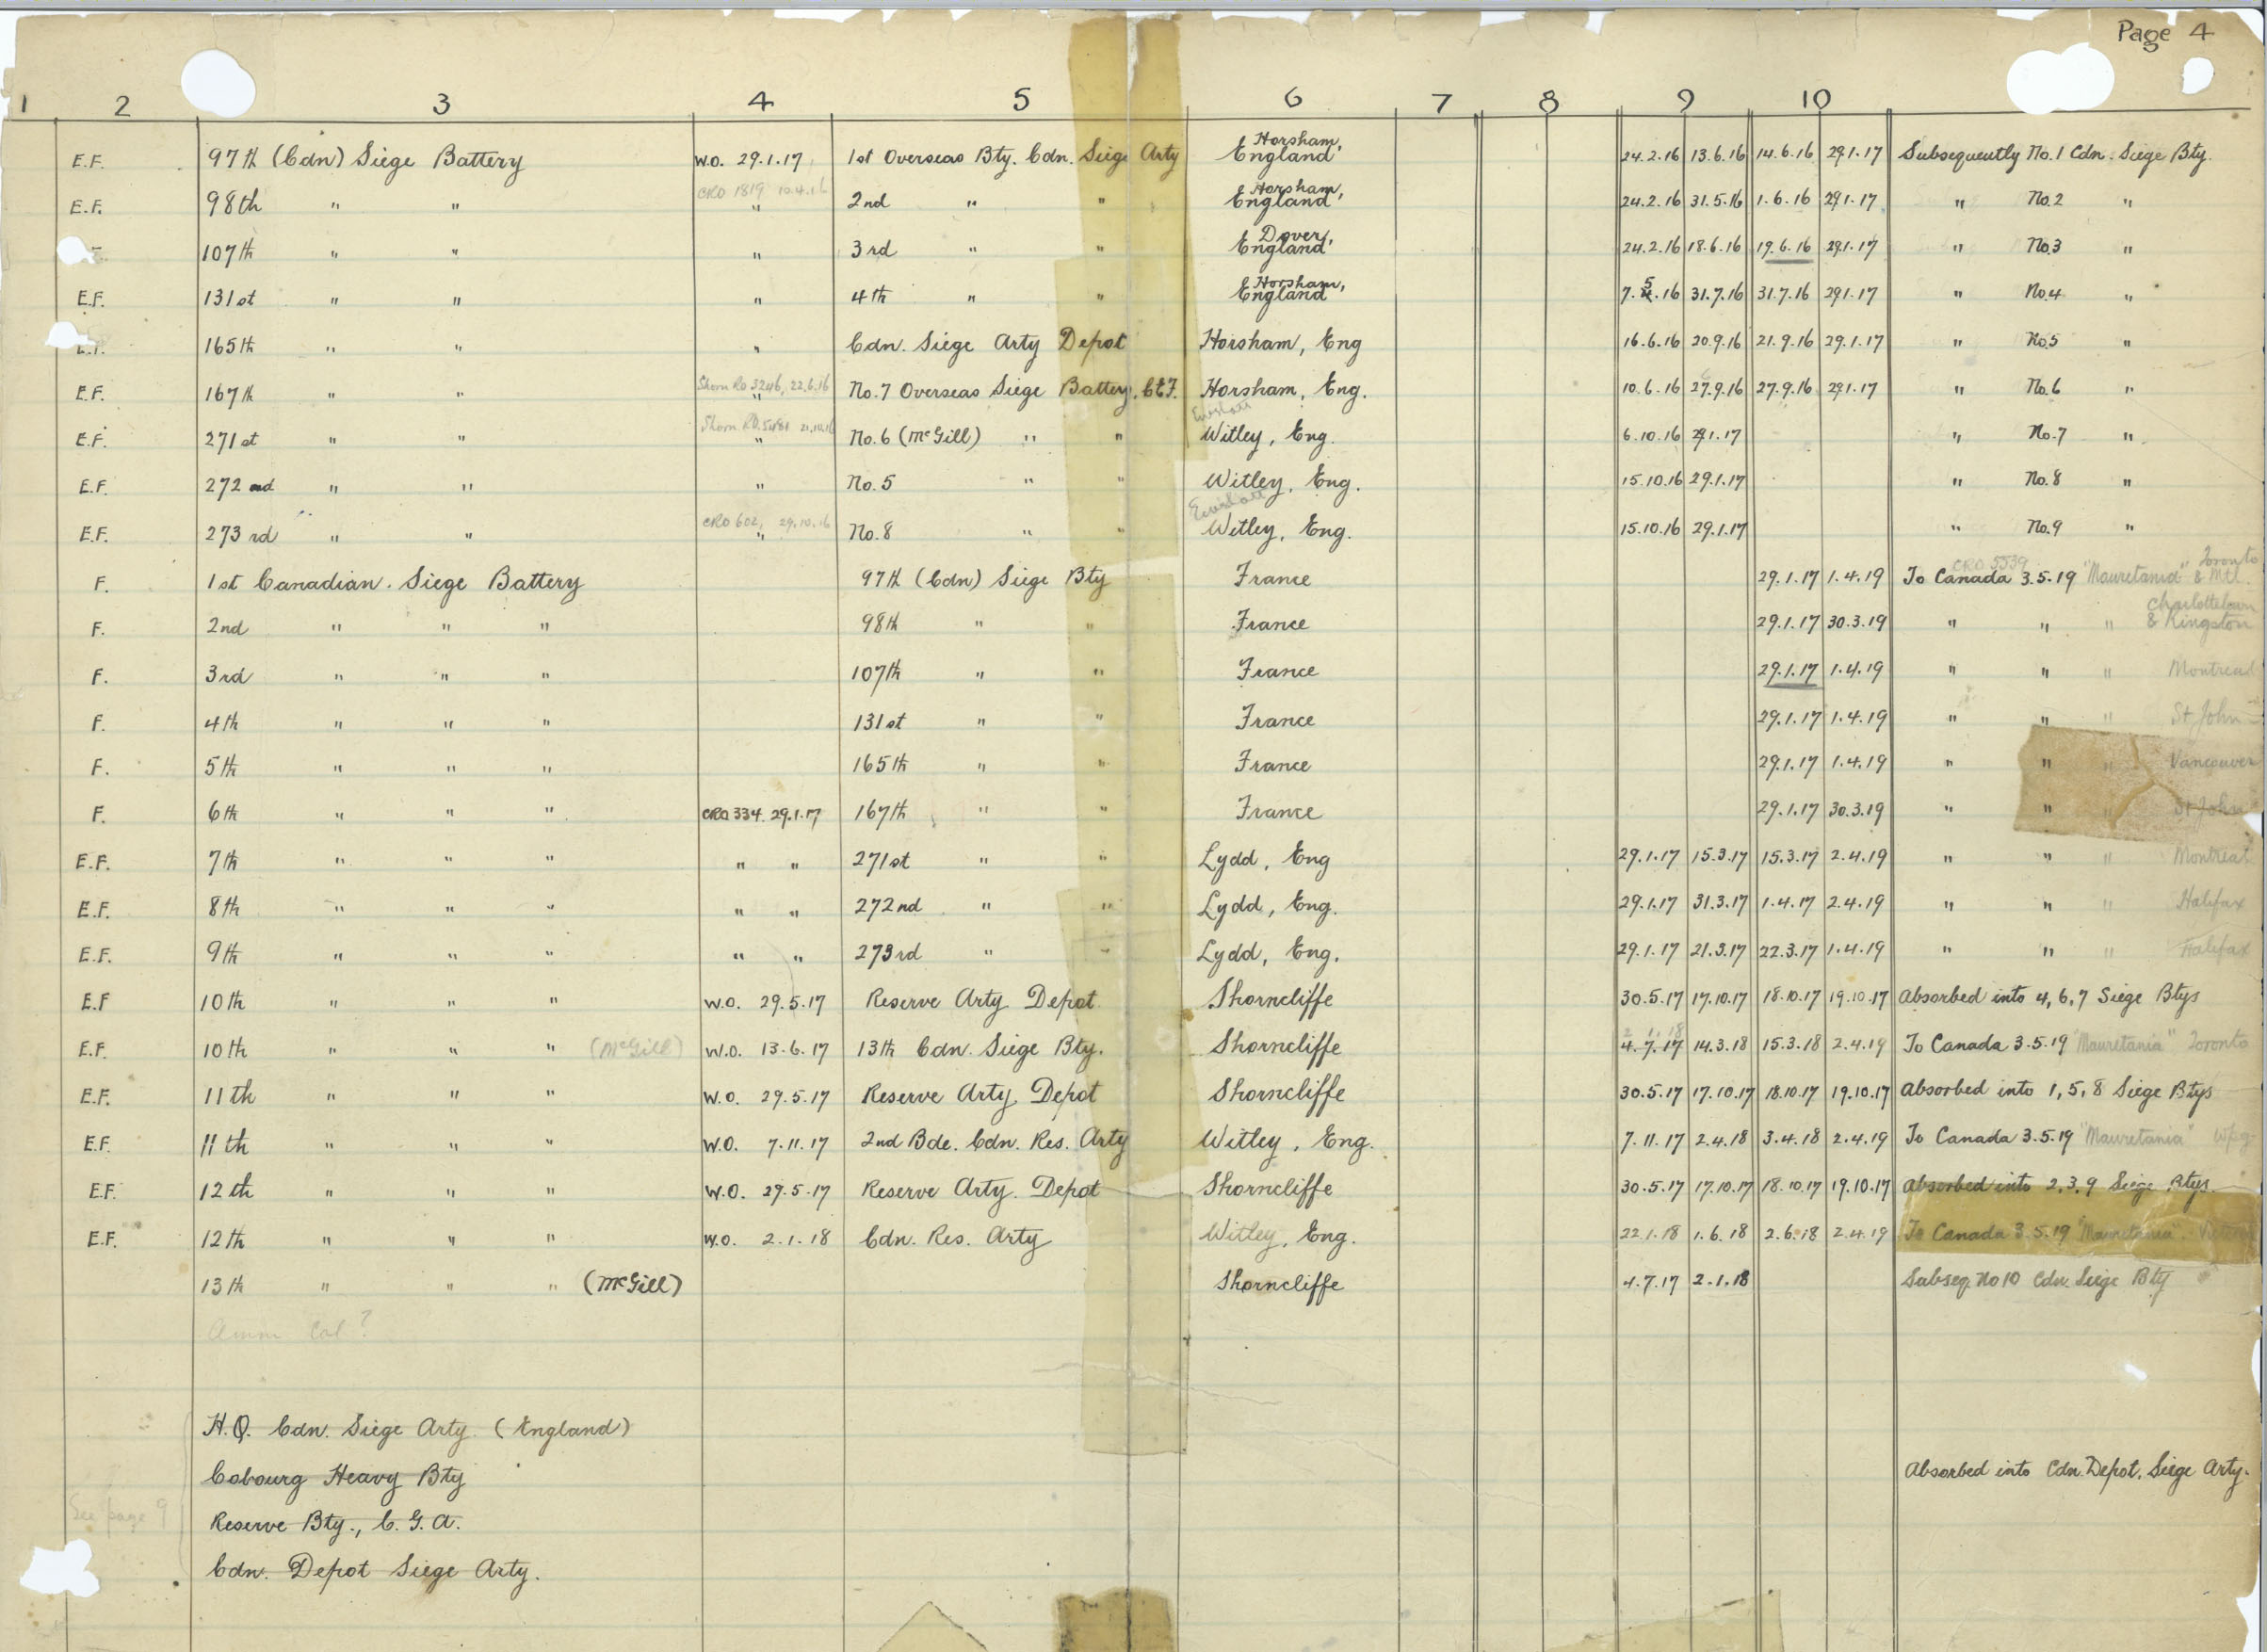 Page 4
1 2 3 4 5 6 7 8 9 10
E.F. 97th (Cdn) Siege Battery W.O. 29.1.17 1st Overseas Bty. Cdn. Siege Arty Horsham, England 24.2.16 13.6.16 14.6.16 29.1.17 Subsequently No.1 Cdn. Siege Bty.
CRO 1819 10.4.16
E.F. 98th " " " 2nd " " Horsham, England 24.2.16 31.5.16 1.6.16 29.1.17 " No.2 "
107th " " " 3rd " " Dover, England 24.2.16 18.6.16 19.6.16 29.1.17 " No.3 "
E.F. 131st " " " 4th " " Horsham, England 7.5.16 31.7.16 31.7.16 29.1.17 " No.4 "
E.F. 165th " " " Cdn. Siege Arty Depot Horsham, Eng 16.6.16 20.9.16 21.9.16 29.1.17 " No.5 "
Shorn RO 3246, 22.6.16
E.F. 167th " " " No.7 Overseas Siege Battery, CEF. Horsham, Eng. 10.6.16 27.9.16 27.9.16 29.1.17 " No.6 "
E.F. 271st " " " No.6 (McGill) " " Witley, Eng. 6.10.16 29.1.17 " No.7 "
E.F. 272nd " " " No.5 " " Witley, Eng. 15.10.16 29.1.17 " No.8 "
CRO 602, 29.10.16
E.F. 273rd " " " No.8 " " Witley, Eng. 15.10.16 29.1.17 " No.9 "
CRO 5539 Toronto
F. 1st Canadian Siege Battery 97th (Cdn) Siege Bty France 29.1.17 1.4.19 To Canada 3.5.19 "Mauretania" & Mtl.
Charlottetown
F. 2nd " " " 98th " " France 29.1.17 30.3.19 " " " & Kingston
F. 3rd " " " 107th " " France 29.1.17 1.4.19 " " " Montreal
F. 4th " " " 131st " " France 29.1.17 1.4.19 " " " St John
F. 5th " " " 165th " " France 29.1.17 1.4.19 " " " Vancouver
F. 6th " " " CRO 334 29.1.17 167th " " France 29.1.17 30.3.19 " " " St John
E.F. 7th " " " " " 271st " " Lydd, Eng 29.1.17 15.3.17 15.3.17 2.4.19 " " " Montreal
E.F. 8th " " " " " 272nd " " Lydd, Eng. 29.1.17 31.3.17 1.4.17 2.4.19 " " " Halifax
E.F. 9th " " " " " 273rd " " Lydd, Eng. 29.1.17 21.3.17 22.3.17 1.4.19 " " " Halifax
E.F 10th " " " W.O. 29.5.17 Reserve Arty Depot Shorncliffe 30.5.17 17.10.17 18.10.17 19.10.17 Absorbed into 4,6,7 Siege Btys
2 1.18
E.F. 10th " " " (McGill) W.O. 13.6.17 13th Cdn. Siege Bty. Shorncliffe 4.7.17 14.3.18 15.3.18 2.4.19 To Canada 3.5.19 "Mauretania" Toronto
E.F. 11th " " " W.O. 29.5.17 Reserve Arty Depot Shorncliffe 30.5.17 17.10.17 18.10.17 19.10.17 Absorbed into 1,5,8 Siege Btys
E.F. 11th " " " W.O. 7.11.17 2nd Bde. Cdn. Res. Arty Witley, Eng. 7.11.17 2.4.18 3.4.18 2.4.19 To Canada 3.5.19 "Mauretania" Wpg
E.F. 12th " " " W.O. 29.5.17 Reserve Arty. Depot Shorncliffe 30.5.17 17.10.17 18.10.17 19.10.17 Absorbed into 2,3,9 Siege Btys.
E.F. 12th " " " W.O. 2.1.18 Cdn. Res. Arty Witley, Eng. 22.1.18 1.6.18 2.6.18 2.4.19 To Canada 3.5.19 "Mauretania".
13th " " " (McGill) Shorncliffe 4.7.17 2.1.18 Subseq. No 10 Cdn. Siege Bty
Amm Col ?
H.Q. Cdn. Siege Arty. (England)
Cobourg Heavy Bty Absorbed into Cdn. Depot, Siege Arty.
See page 9
Reserve Bty., C.G.A.
Cdn. Depot Siege Arty.